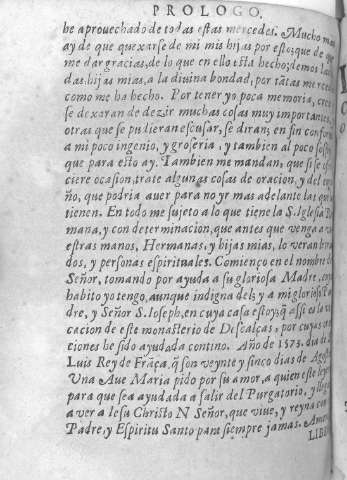 PROLOGO.
he aprouechado de todas estas mercedes. Mucho mas
ay de que quexarse de mi mis hijas por esto; que de que
me dar gracias, de lo que en ello està hecho; demos
das hijas mias, a la diuina bondad, por tãtas merce
como me ha hecho. Por tener yo poca memoria, creo
se dexaran de dezir muchas cosas muy importantes,
otras que se pudieran escusar, se diran; en sin confor
a mi poco ingenio, y groseria, y tambien al poco sossie
que para esto ay. Tambien me mandan, que si se
ciere ocasion, trate algunas cosas de oracion, y del
ño, que podria auer para no yr mas adelante las que
tienen. En todo me sujeto a lo que tiene la S. Iglesia
mana, y con determinacion, que antes que venga a
estras manos, Hermanas, y hijas mias, lo veran
dos, y personas espirituales. Comienço en el nombre
Señor, tomando por ayuda a su gloriosa Madre,
habito yo tengo, aunque indigna del; y a mi glorioso
dre, y Señor S. Ioseph, en cuya casa estoy; que assi es la
cacion de este monasterio de Descalças, por cuyas
ciones he sido ayudada contino. Año de 1573. dia de
Luis Rey de Frãça, q̃ son veynte y sinco dias de Agos
Una Aue Maria pido por su amor, a quien este leye
para que sea ayudada a salir del Purgatorio, y lleg
a ver a Iesu Christo N Señor, que viue, y reyna con
Padre, y Espiritu Santo para siempre jamas. Amen
LIBR